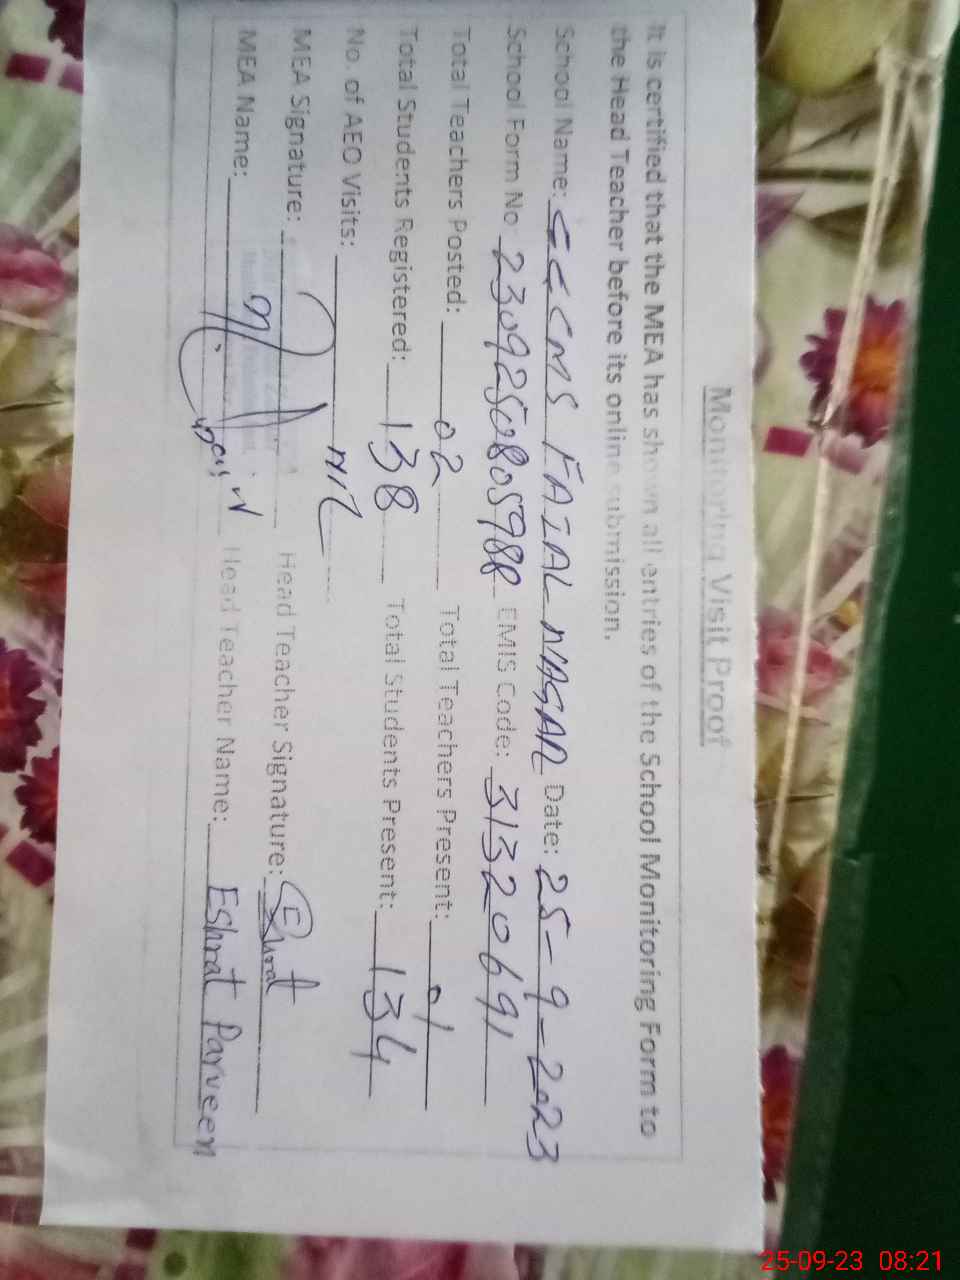 Monitoring Visit Proof
It is certified that the MEA has shown all entries of the School Monitoring Form to
the Head Teacher before its online submission.
School Name: GGCMS FAIAL NAGAR Date: 25-9-2023
School Form No 2309250805988 EMIS Code: 31320691
Total Teachers Posted: 02 Total Teachers Present: 01
Total Students Registered: 138 Total Students Present: 134
No. of AEO Visits: Nil
MEA Signature: Head Teacher Signature:
MEA Name: Head Teacher Name: Eshrat Parveen
25-09-23 08:21